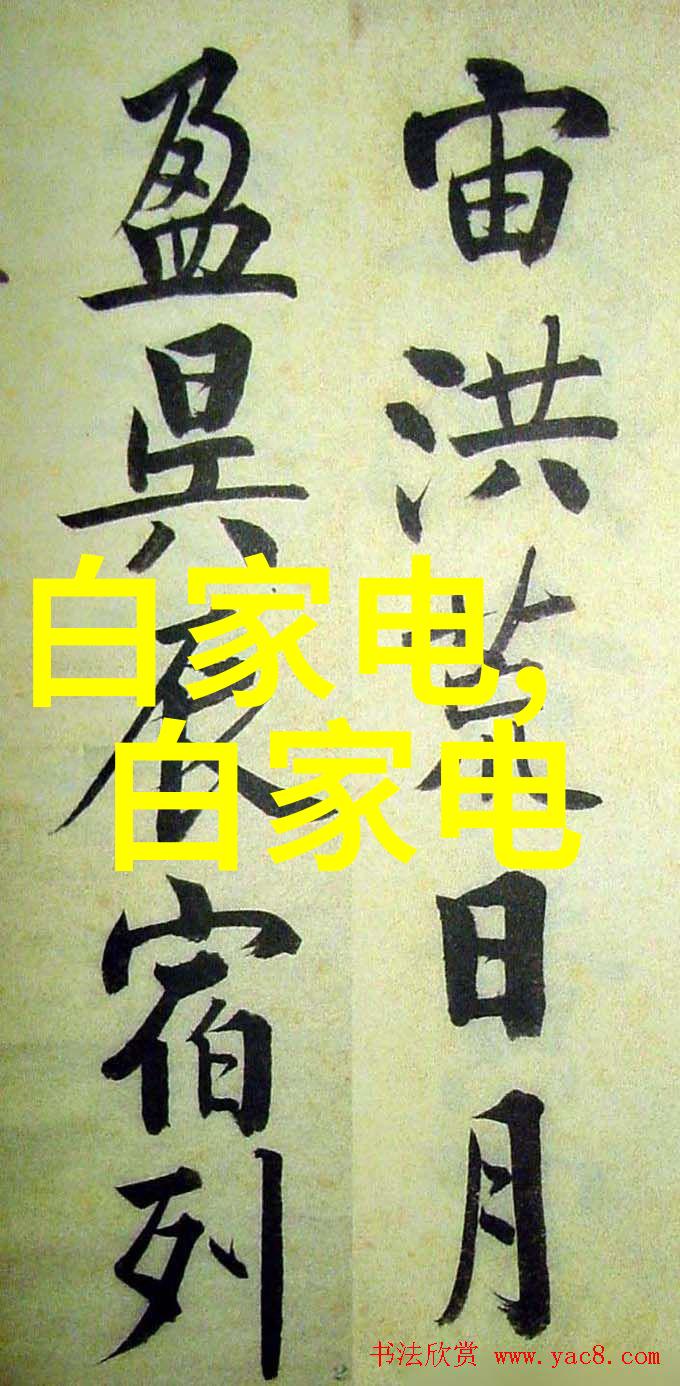 宙洪荒日月
盈昃辰宿列
白家电,
白家电
书法欣赏 www.yac8.com